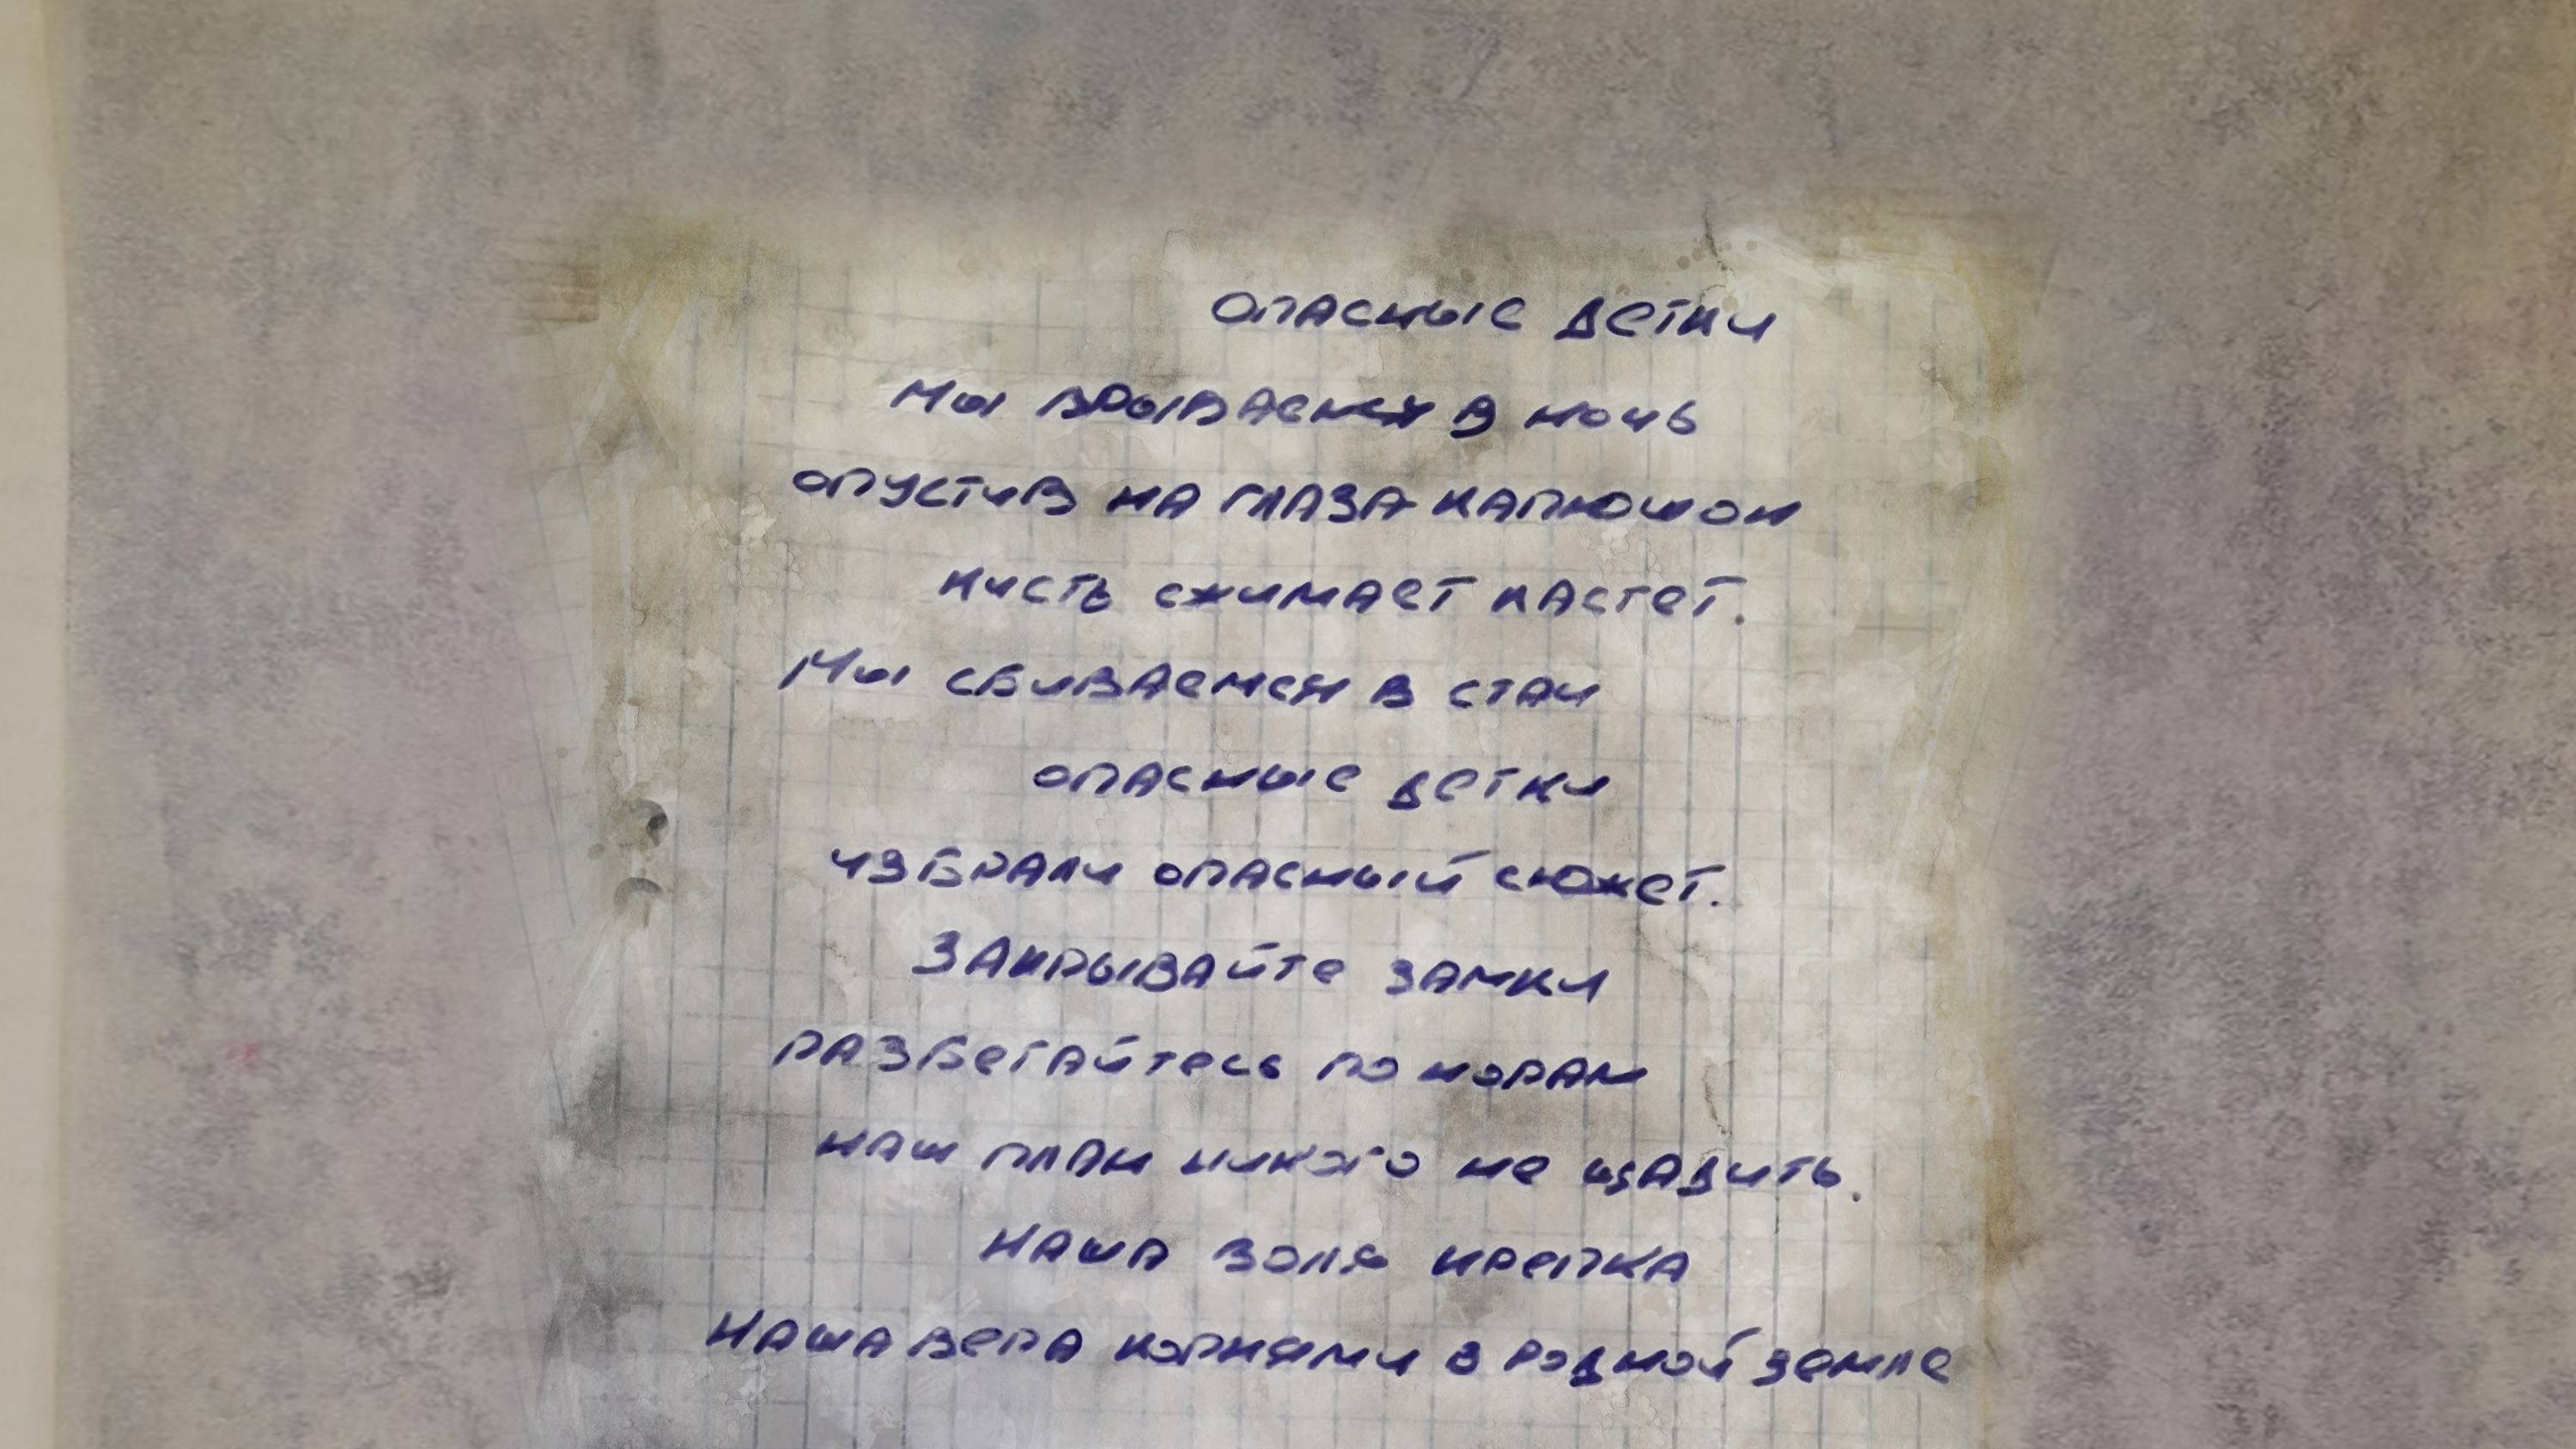 Опасные детки
Мы врываемся в ночь
опустив на глаза капюшон
кисть сжимает кастет.
Мы сбиваемся в стаи
опасные детки
избрали опасный сюжет.
Закрывайте замки
разбегайтесь по норам
наш план никого не щадить.
Наша воля крепка
Наша вера корнями в родной земле